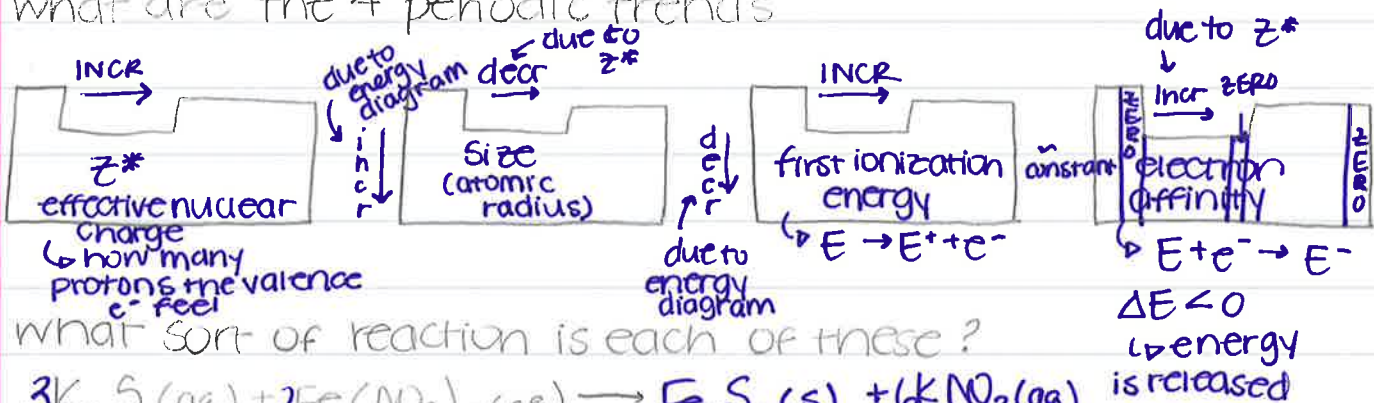 What are the 4 periodic trends
INCR
Z*
effective nuclear
charge
↳ how many
protons the valence
e⁻ feel
due to
energy
diagram
incr
decr
due to
Z*
Size
(atomic
radius)
decr
due to
energy
diagram
INCR
first ionization
energy
↳ E → E⁺ + e⁻
~
constant
due to Z*
Incr
ZERO
ZERO
ZERO
electron
affinity
↳ E + e⁻ → E⁻
ΔE < 0
↳ energy
is released
What sort of reaction is each of these?
(aq) + 2Fe(NO₃) → Fe S (s) + 6KNO₃(aq)